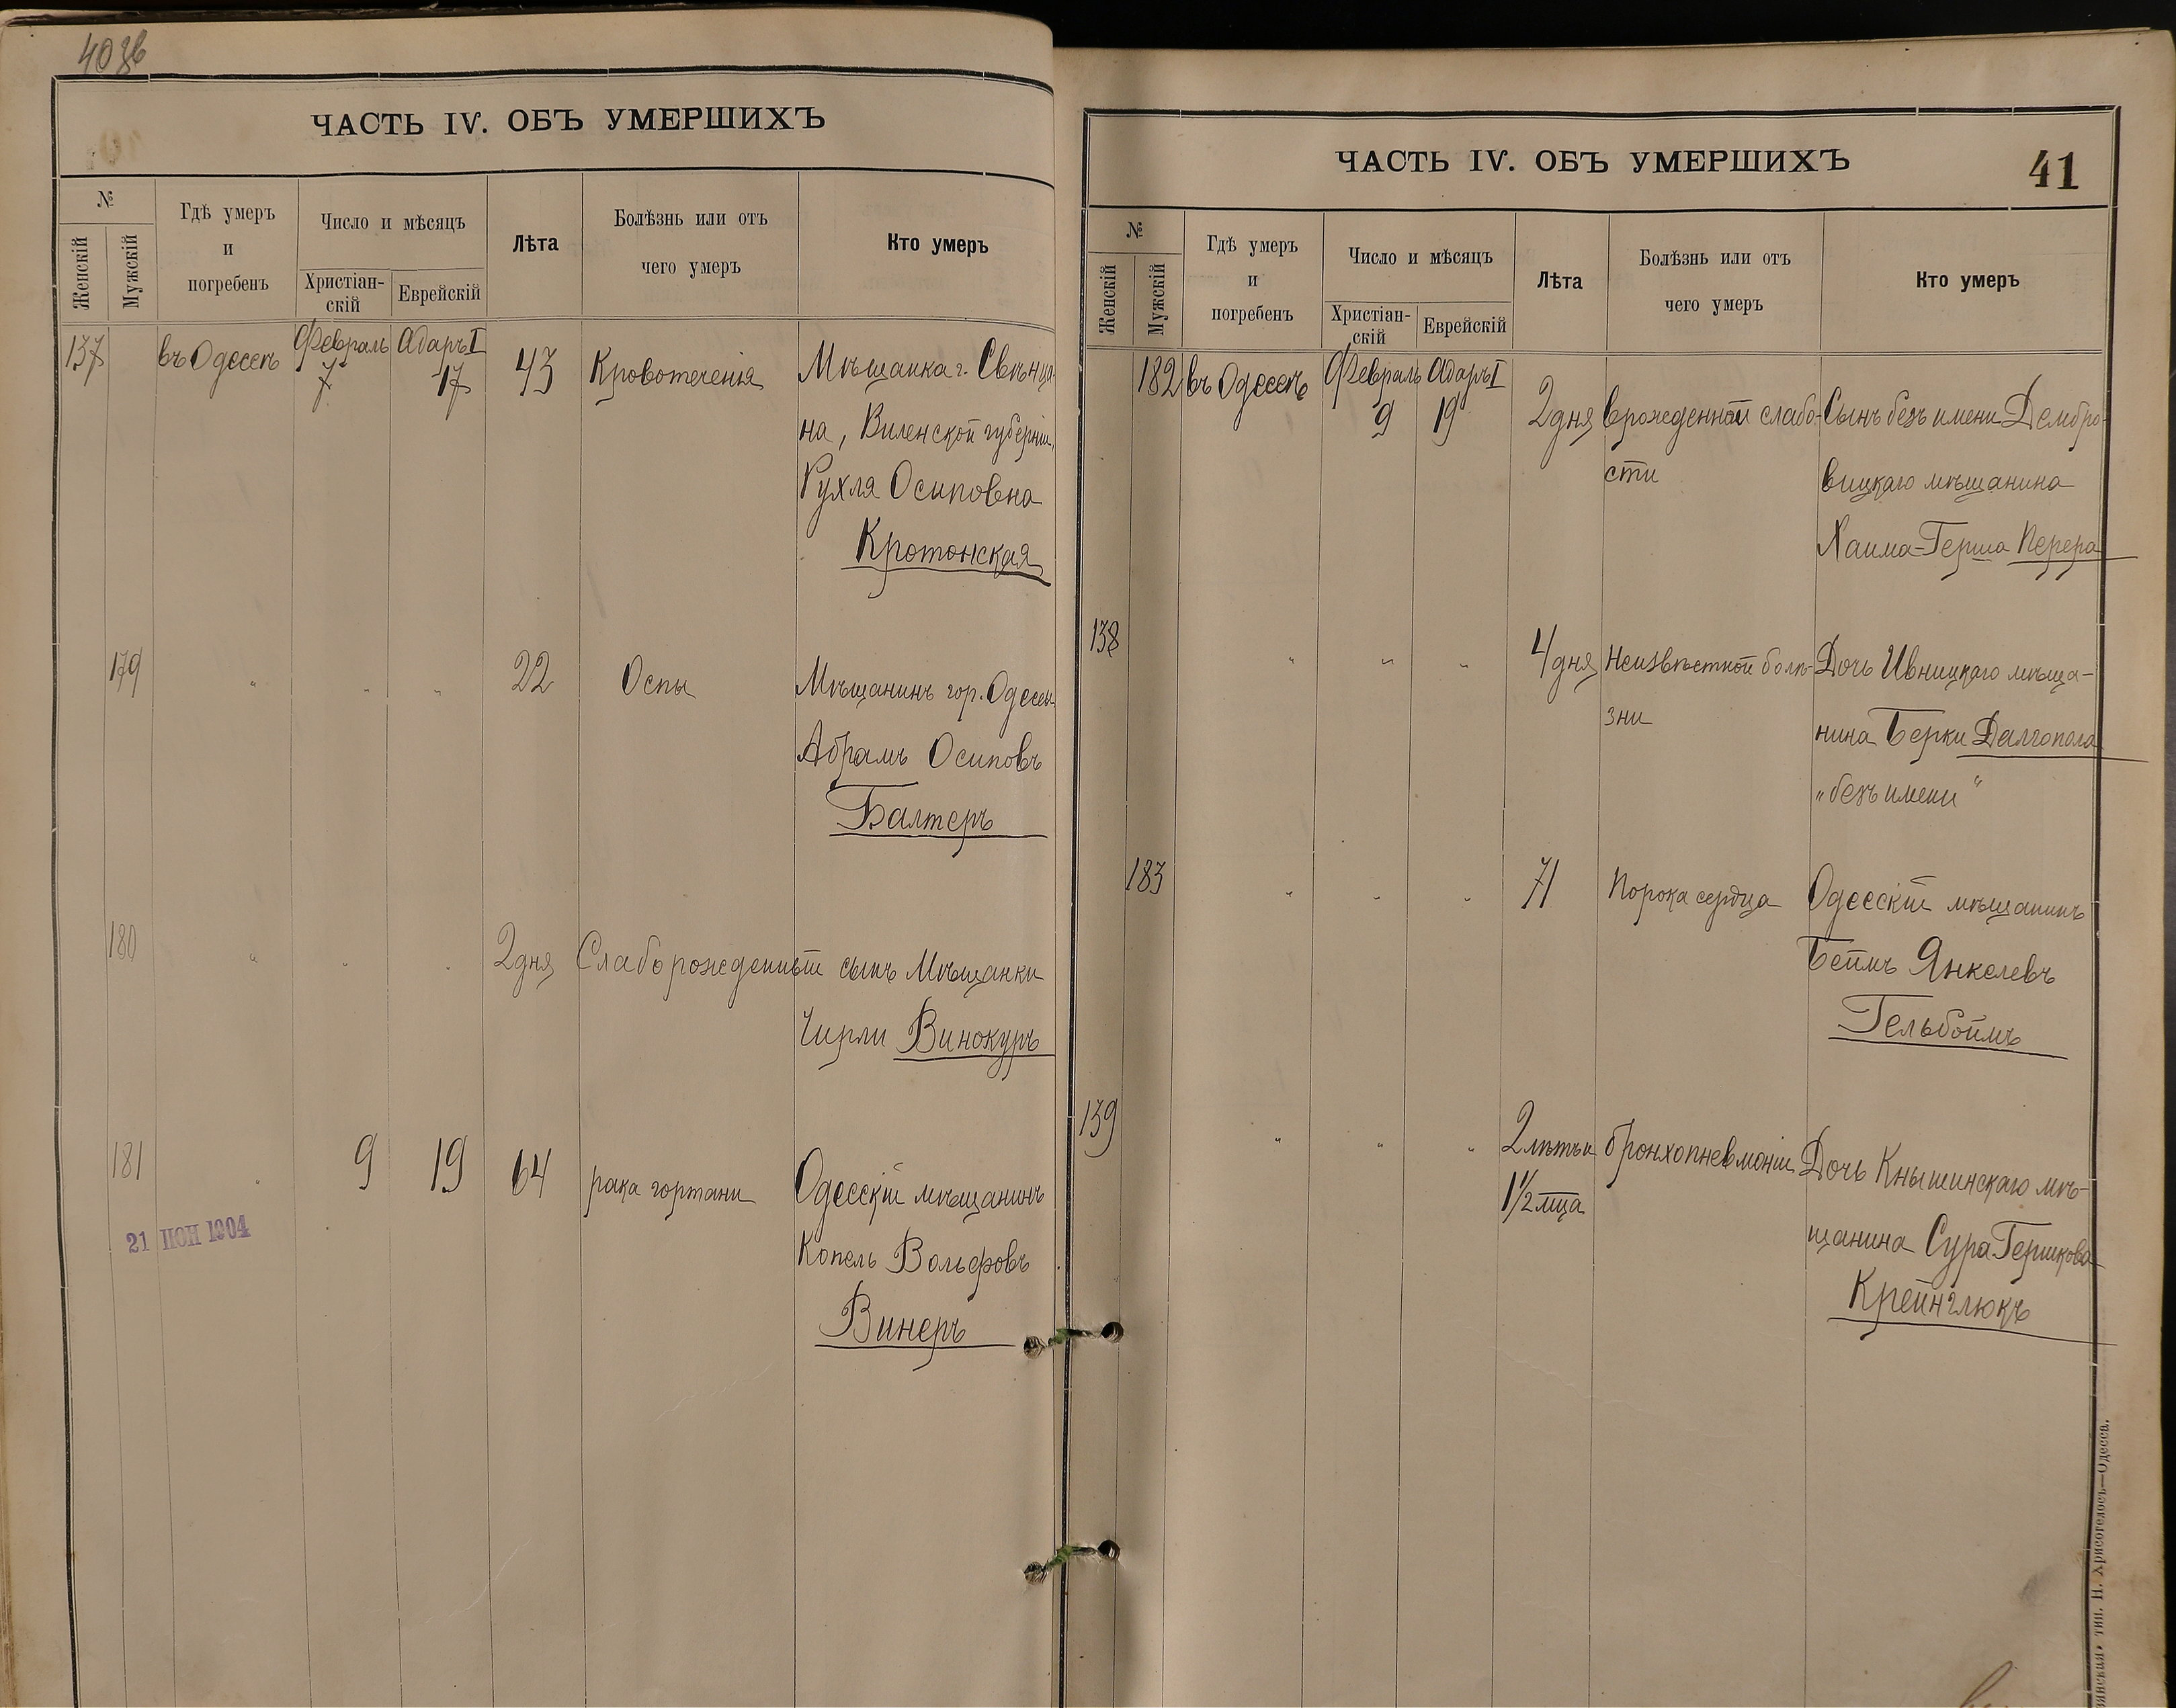 40 зв
ЧАСТЬ IV. ОБЪ УМЕРШИХЪ
№
Женскій
Мужскій
Гдѣ умеръ
и
погребенъ
Число и мѣсяцъ
Христіан-
скій
Еврейскій
Лѣта
Болѣзнь или отъ
чего умеръ
Кто умеръ
137 въ Одессѣ Февраль 7 Адаръ I 17 43 Кровотеченія Мѣщанка г. Свѣнця-
на, Виленской губерніи,
Рухля Осиповна
Кротонская
179 " " " 22 Оспы Мѣщанинъ гор. Одессы
Абрамъ Осиповъ
Балтеръ
180 " " " 2 дня Слаборожденный сынъ Мѣщанки
Чирли Винокуръ
181 " 9 19 64 рака гортани Одесскій мѣщанинъ
Копель Вольфовъ
Винеръ
21 ІЮН 1904
ЧАСТЬ IV. ОБЪ УМЕРШИХЪ
41
№
Женскій
Мужскій
Гдѣ умеръ
и
погребенъ
Число и мѣсяцъ
Христіан-
скій
Еврейскій
Лѣта
Болѣзнь или отъ
чего умеръ
Кто умеръ
182 въ Одессѣ Февраль 9 Адаръ I 19 2 дня врожденной слабо- Сынъ безъ имени Домбро-
сти вицкаго мѣщанина
Хаима-Герша Перера
138 " " " 4 дня Неизвѣстной болѣ- Дочь Ивницкаго мѣща-
зни нина Берки Далгопола
„безъ имени"
183 " " " 71 Порока сердца Одесскій мѣщанинъ
Бейлъ Янкелевъ
Гельбоймъ
139 " " " 2 лѣтъ и бронхопневмоніи Дочь Кнышинскаго мѣ-
1 1/2 мца щанина Сура Гершкова
Крейнглюкъ
тип. Н. Хрисогелосъ.—Одесса.